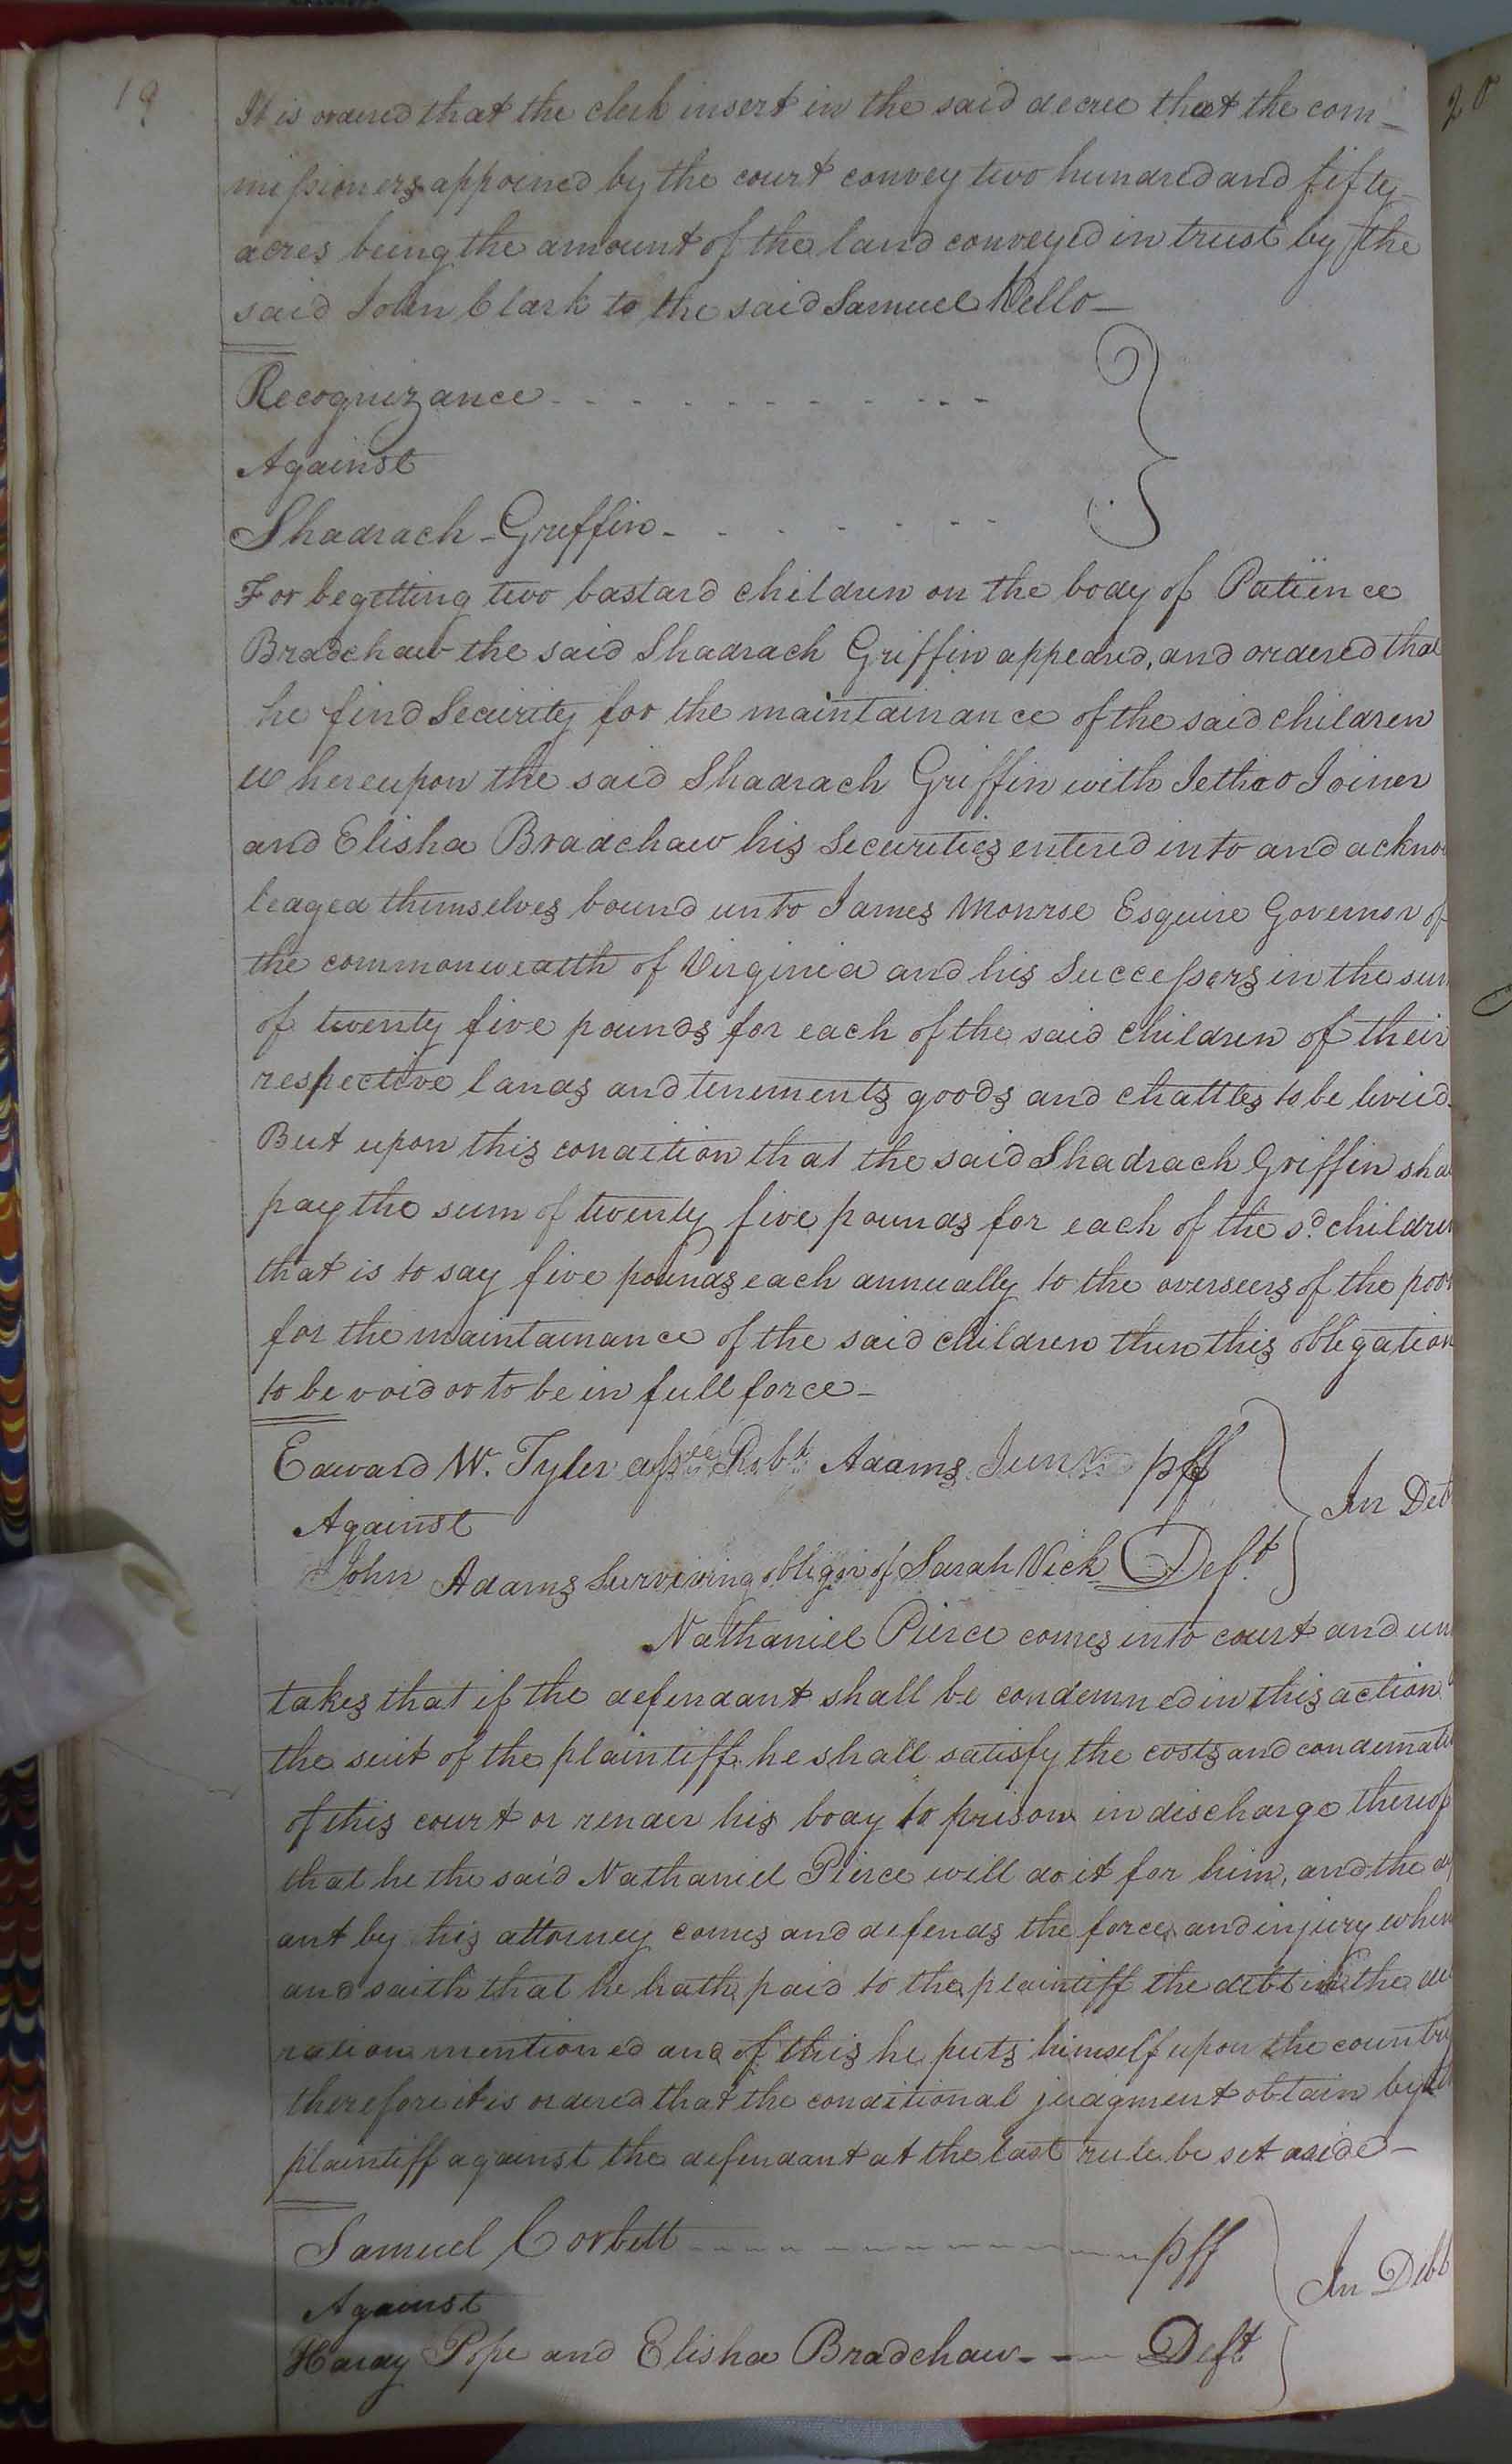 19
20
It is ordered that the clerk insert in the said decree that the com-
missioners appoined by the court convey two hundred and fifty
acres being the amount of the land conveyed in trust by the
said John Clark to the said Samuel Kello -
Recognizance - - - - - - - - - - -
Against
Shadrach - Griffin - - - - - - -
For begetting two bastard children on the body of Patience
Bradchaw the said Shadrach Griffin appeared, and ordered that
he find Security for the maintainance of the said children
whereupon the said Shadrach Griffin with Jethro Joiner
and Elisha Bradchaw his Securities entered into and acknow
ledged themselves bound unto James Monroe Esquire Governor of
the commonwealth of Virginia and his Successers in the sum
of twenty five pounds for each of the said children of their
respective lands and tenements goods and chattles to be levied.
But upon this condition that the said Shadrach Griffin sha
pay the sum of twenty five pounds for each of the sd. childre
that is to say five pounds each annually to the overseers of the poor
for the maintainance of the said children then this obligation
to be void or to be in full force -
Edward W. Tyler assee. Robt. Adams Junr. pff
Against
In Deb
John Adams Surviving obligor of Sarah Vick Deft.
Nathaniel Pierce comes into court and un
takes that if the defendant shall be condemned in this action
the suit of the plaintiff he shall satisfy the costs and condemnati
of this court or render his body to prison in discharge thereof
that he the said Nathaniel Pierce will do it for him, and the d
ant by his attorney comes and defends the force and injury when
and saith that he hath paid to the plaintiff the debt in the de
ration mentioned and of this he puts himself upon the country
therefore it is ordered that the conditional judgment obtain by th
plaintiff against the defendant at the last rule be set aside -
Samuel Corbett - - - - - - - - - - pff
Against
In Debt
Hardy Pope and Elisha Bradchaw - - - Deft